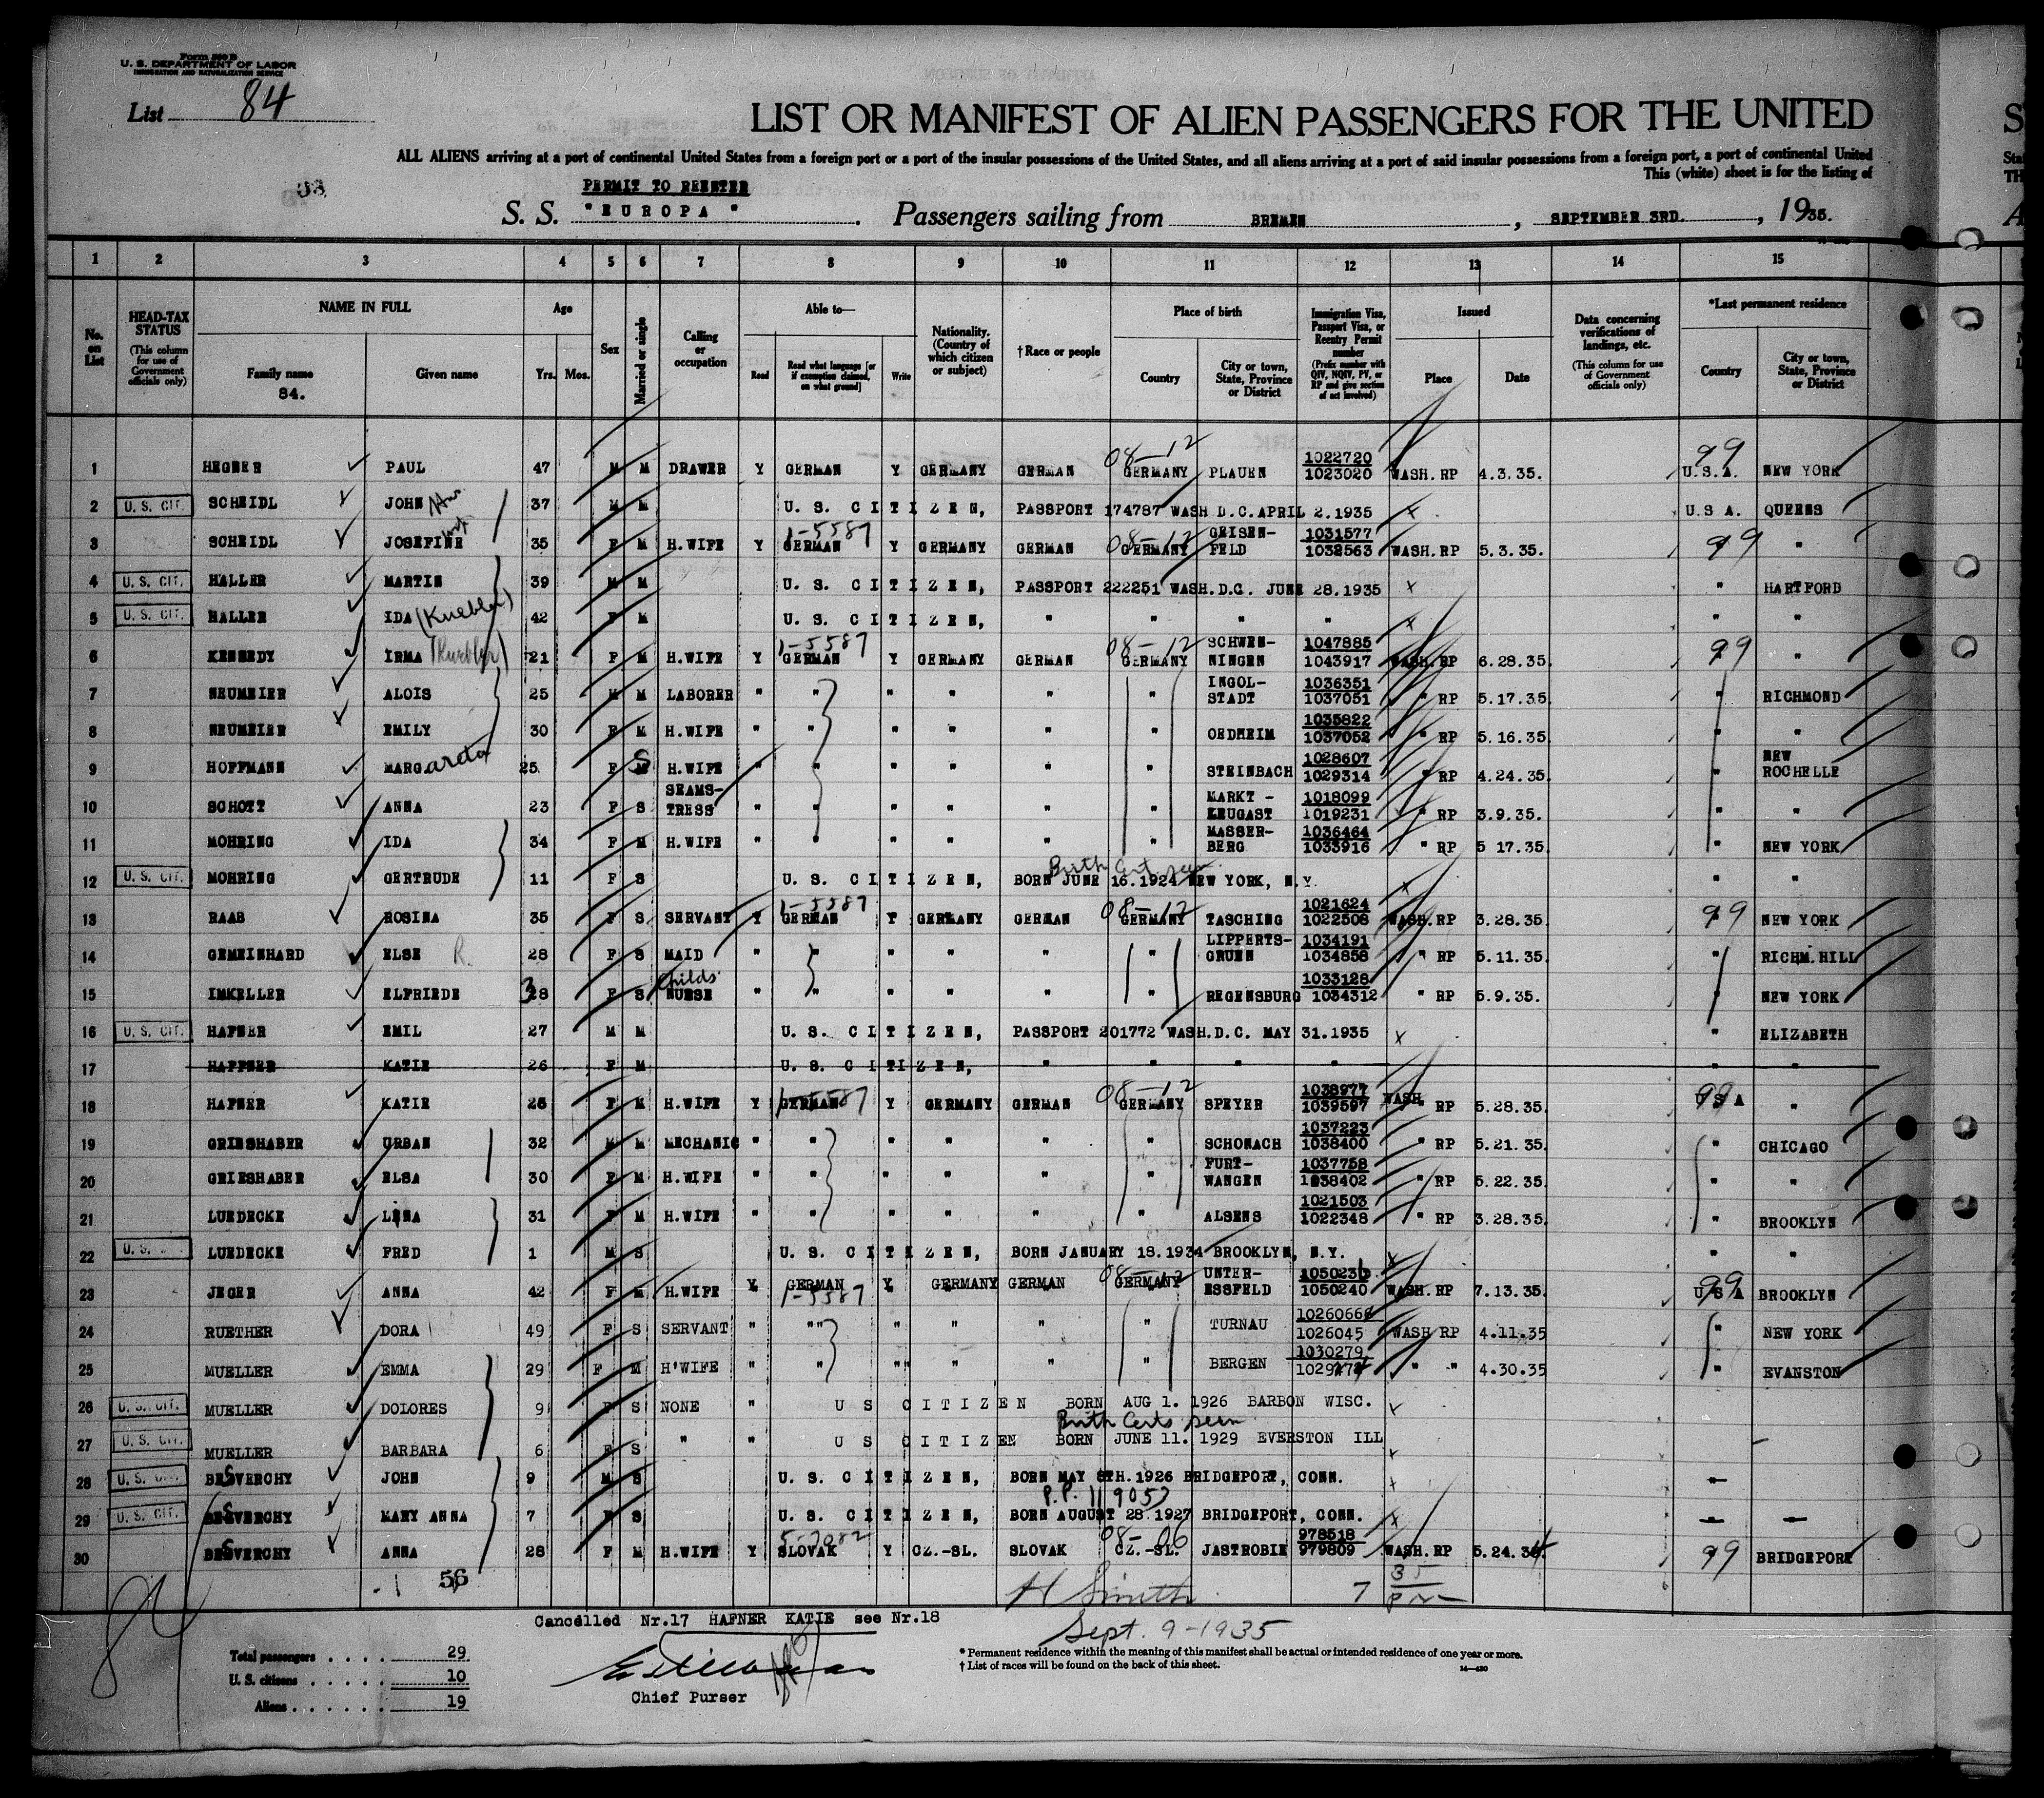 Form 500 B
U. S. DEPARTMENT OF LABOR
IMMIGRATION AND NATURALIZATION SERVICE
List 84
LIST OR MANIFEST OF ALIEN PASSENGERS FOR THE UNITED
ALL ALIENS arriving at a port of continental United States from a foreign port or a port of the insular possessions of the United States, and all aliens arriving at a port of said insular possessions from a foreign port, a port of continental United
This (white) sheet is for the listing of
PERMIT TO REENTER
S. S. "EUROPA". Passengers sailing from BREMEN, SEPTEMBER 3RD., 1935.
1 2 3 4 5 6 7 8 9 10 11 12 13 14 15
No. on List HEAD-TAX STATUS (This column for use of Government officials only) NAME IN FULL Family name 84. Given name Age Yrs. Mos. Sex Married or single Calling or occupation Able to— Read Read what language [or if exemption claimed, on what ground] Write Nationality. (Country of which citizen or subject) †Race or people Place of birth Country City or town, State, Province or District Immigration Visa, Passport Visa, or Reentry Permit number (Prefix number with QIV, NQIV, PV, or RP and give section of act involved) Issued Place Date Data concerning verifications of landings, etc. (This column for use of Government officials only) *Last permanent residence Country City or town, State, Province or District
08-12 1022720 99
1 HEGNER PAUL 47 M M DRAWER Y GERMAN Y GERMANY GERMAN GERMANY PLAUEN 1023020 WASH. RP 4.3.35. U.S.A. NEW YORK
2 U. S. CIT. SCHEIDL JOHN 37 M M U. S. CITIZEN, PASSPORT 174787 WASH D.C. APRIL 2.1935 U S A. QUEENS
1-5587 08-12 GEISEN- 1031577
3 SCHEIDL JOSEFINE 35 F M H.WIFE Y GERMAN Y GERMANY GERMAN GERMANY FELD 1032563 WASH. RP 5.3.35. 99 "
4 U. S. CIT. HALLER MARTIN 39 M M U. S. CITIZEN, PASSPORT 222251 WASH.D.C. JUNE 28.1935 " HARTFORD
5 U. S. CIT. HALLER IDA (Kuebler) 42 F M U. S. CITIZEN, " " " " " "
1-5587 08-12 SCHWEN- 1047885
6 KENNEDY IRMA (Kuebler) 21 F M H.WIFE Y GERMAN Y GERMANY GERMAN GERMANY NINGEN 1043917 WASH. RP 6.28.35. 99 "
INGOL- 1036351
7 NEUMEIER ALOIS 25 M M LABORER " " " " " " STADT 1037051 " RP 5.17.35. " RICHMOND
1035822
8 NEUMEIER EMILY 30 F M H.WIFE " " " " " " OEDHEIM 1037052 " RP 5.16.35. " "
1028607 NEW
9 HOFFMANN MARGareta 25. F S H.WIFE " " " " " " STEINBACH 1029314 " RP 4.24.35. " ROCHELLE
SEAMS- MARKT - 1018099
10 SCHOTT ANNA 23 F S TRESS " " " " " " LEUGAST 1019231 " RP 3.9.35. " "
MASSER- 1036464
11 MOHRING IDA 34 F M H.WIFE " " " " " " BERG 1033916 " RP 5 17.35. " NEW YORK
Birth Cert seen
12 U. S. CIT. MOHRING GERTRUDE 11 F S U. S. CITIZEN, BORN JUNE 16.1924 NEW YORK, N.Y. " "
1-5587 08-12 1021624
13 RAAB ROSINA 35 F S SERVANT Y GERMAN Y GERMANY GERMAN GERMANY TASCHING 1022508 WASH. RP 3.28.35. 99 NEW YORK
LIPPERTS- 1034191
14 GEMEINHARD ELSE R. 28 F S MAID " " " " " " GRUEN 1034858 " RP 5.11.35. " RICHM.HILL
Childs 1033128
15 IMKELLER ELFRIEDE 38 F S NURSE " " " " " " REGENSBURG 1034312 " RP 5.9.35. " NEW YORK
16 U. S. CIT. HAFNER EMIL 27 M M U. S. CITIZEN, PASSPORT 201772 WASH.D.C. MAY 31.1935 " ELIZABETH
17 HAFFNER KATIE 26 F M U. S. CITIZEN, " " " " " "
1-5587 08-12 1038977 99
18 HAFNER KATIE 26 F M H.WIFE Y GERMAN Y GERMANY GERMAN GERMANY SPEYER 1039597 WASH. RP 5.28.35. U S A "
1037223
19 GRIESHABER URBAN 32 M M MECHANIC " " " " " " SCHONACH 1038400 " RP 5.21.35. " CHICAGO
FURT- 1037758
20 GRIESHABER ELSA 30 F M H.WIFE " " " " " " WANGEN 1038402 " RP 5.22.35. " "
1021503
21 LUEDECKE LINA 31 F M H.WIFE " " " " " " ALSENS 1022348 " RP 3.28.35. " BROOKLYN
22 U. S. LUEDECKE FRED 1 M S U. S. CITIZEN, BORN JANUARY 18.1934 BROOKLYN, N.Y. " "
08-12 UNTER- 1050236 99
23 JEGER ANNA 42 F M H.WIFE Y GERMAN Y GERMANY GERMAN GERMANY ESSFELD 1050240 WASH. RP 7.13.35. U S A BROOKLYN
1-5587 10260666
24 RUETHER DORA 49 F S SERVANT " "" " " " " TURNAU 1026045 WASH RP 4.11.35 " NEW YORK
1030279
25 MUELLER EMMA 29 F M H'WIFE " " "" " " " BERGEN 1029474 " " 4.30.35 " EVANSTON
26 U. S. CIT. MUELLER DOLORES 9 F S NONE " US CITIZEN BORN AUG 1. 1926 BARBON WISC.
Birth Certs seen
27 U. S. CIT. MUELLER BARBARA 6 F S " " US CITIZEN BORN JUNE 11. 1929 EVERSTON ILL
28 U. S. CIT. BESVERCHY JOHN 9 M S U. S. CITIZEN, BORN MAY 8TH. 1926 BRIDGEPORT, CONN.
P.P. 119053
29 U. S. CIT. BESVERCHY MARY ANNA 7 F S U. S. CITIZEN, BORN AUGUST 28.1927 BRIDGEPORT, CONN.
5-7082 08-06 978518
30 BESVERCHY ANNA 28 F M H.WIFE Y SLOVAK Y CZ.-SL. SLOVAK CZ.-SL. JASTROBIE 979809 WASH. RP 5.24.34. 99 BRIDGEPORT
56 H Smith 7 35
Cancelled Nr.17 HAFNER KATIE see Nr.18
Sept. 9-1935
Total passengers . . . . 29
U. S. citizens . . . . . 10
Aliens . . . . . . 19
Chief Purser
* Permanent residence within the meaning of this manifest shall be actual or intended residence of one year or more.
† List of races will be found on the back of this sheet.
14—430